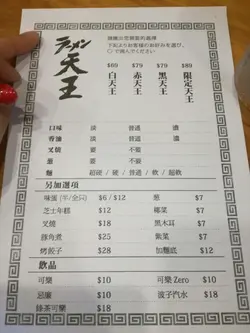 ラーメン
天王
請圈出您需要的選擇
下記よりお客様のお好みを選び、
○で囲んでください。
$69 $79 $79 $89
白天王 赤天王 黑天王 限定天王
口味 淡 普通 濃
香油 淡 普通 濃
叉燒 要 不要
蔥 要 不要
麵 超硬 / 硬 / 普通 / 軟 / 超軟
另加選項
味蛋 (半/全只) $6 / $12
蔥 $7
芝士年糕 $12
椰菜 $7
叉燒 $18
黑木耳 $7
豚角煮 $25
紫菜 $7
烤餃子 $28
加麵底 $12
飲品
可樂 $10
可樂 Zero $10
忌廉 $10
波子汽水 $18
綠茶可樂 $18